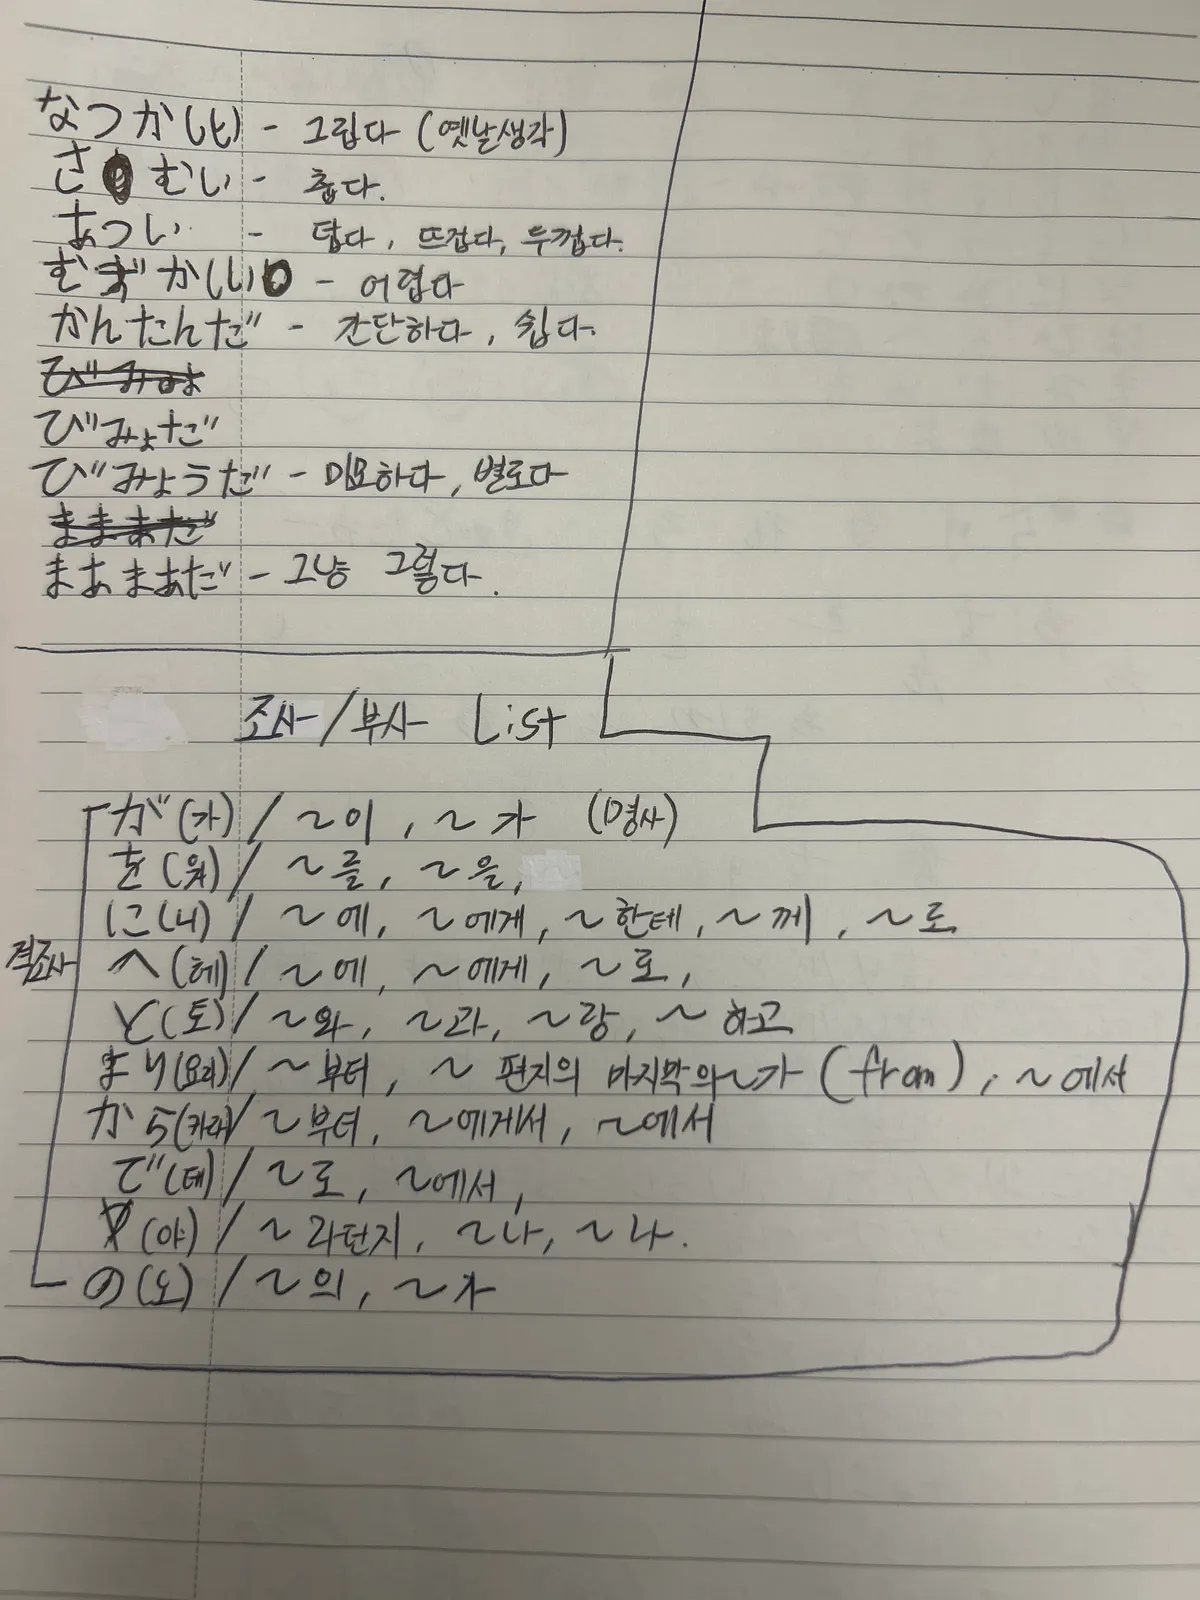 なつかしい - 그립다 (옛날생각)
さむい - 춥다.
あつい - 덥다, 뜨겁다, 두껍다.
むずかしい - 어렵다
かんたんだ - 간단하다, 쉽다.
びみょだ
びみょうだ - 미묘하다, 별로다
まあまあだ - 그냥 그렇다.
조사/부사 List
が(가) / ~이, ~가 (명사)
を(워) / ~를, ~을,
に(니) / ~에, ~에게, ~한테, ~께, ~로
격조사
へ(헤) / ~에, ~에게, ~로,
と(토) / ~와, ~과, ~랑, ~하고
より(요리) / ~부터, ~편지의 마지막의~가 (from), ~에서
から(카라) / ~부터, ~에게서, ~에서
で(데) / ~로, ~에서,
や(야) / ~라던지, ~나, ~나.
の(노) / ~의, ~가